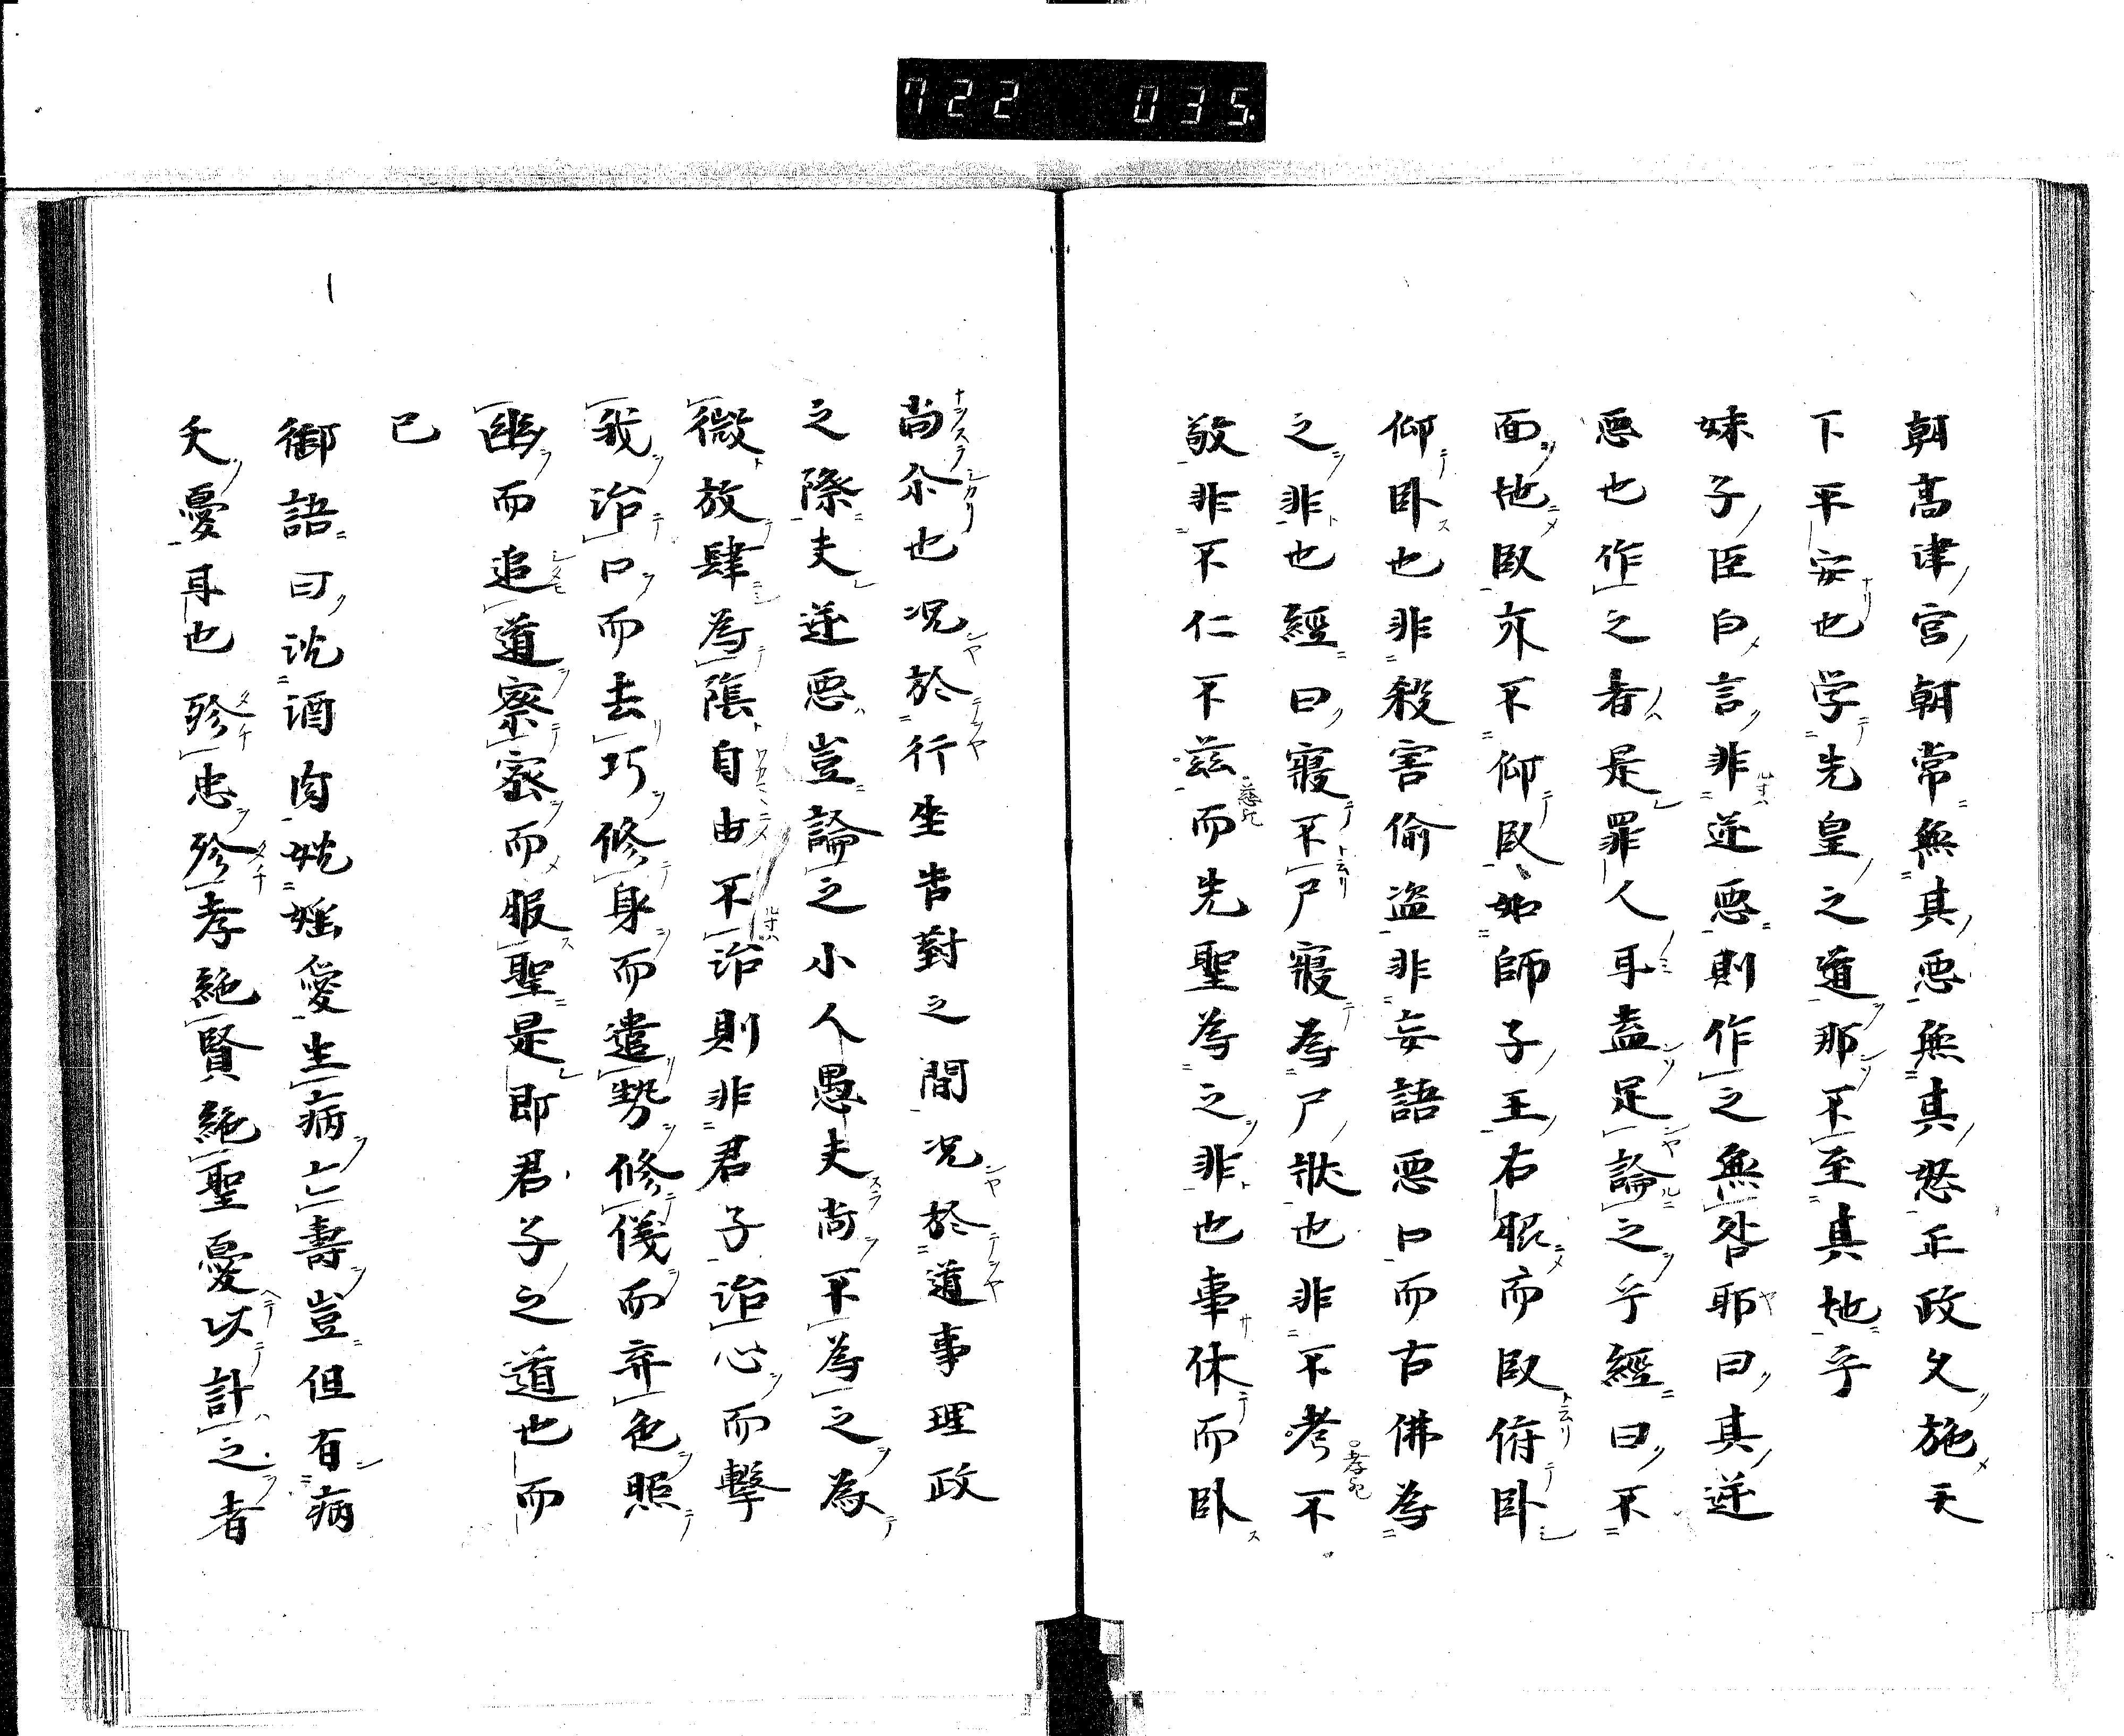 722 035
朝髙津宮朝常無其惡無其怒正政久施天
下平安也学先皇之道那不至真地乎
妹子臣白言非逆惡則作之無咎耶曰其逆
惡也作之者是罪人耳盍足論之乎經曰不
面地臥亦不仰臥如師子王右眠而臥俯卧
仰卧也非殺害偷盗非妄語惡口而古佛為
之非也經曰寢不尸寢為尸狀也非不考不
敬非不仁不兹而先聖為之非也事休而卧
尚尒也况於行坐告對之間况於道事理政
之際夫逆惡豈論之小人愚夫尚不為之為
微放肆為蔭自由不治則非君子治心而擊
我治口而去巧修身而遣勢修儀而弃色照
幽而追道察密而服聖是即君子之道也而
已
御語曰沈酒肉婬愛生病亡壽豈但有病
夭憂耳也殄忠殄孝絶賢絶聖憂以計之者